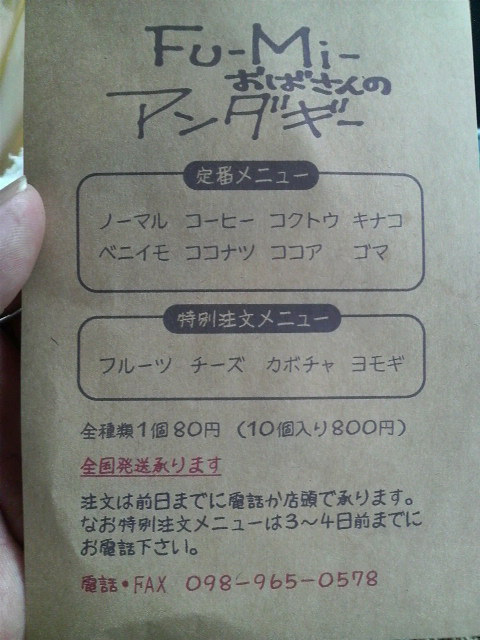 Fu-Mi-
おばさんの
アンダギー
定番メニュー
ノーマル コーヒー コクトウ キナコ
ベニイモ ココナツ ココア ゴマ
特別注文メニュー
フルーツ チーズ カボチャ ヨモギ
全種類1個80円 (10個入り800円)
全国発送承ります
注文は前日までに電話か店頭で承ります。
なお特別注文メニューは3〜4日前までに
お電話下さい。
電話・FAX 098-965-0578